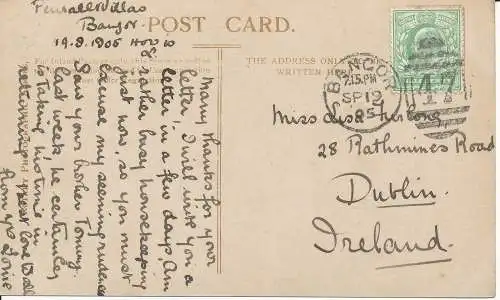 Penrallt Villas
Bangor
POST CARD.
19.9.1905
THE ADDRESS ONLY
WRITTEN HERE
BANGOR
7.15 PM
SP 19
05
Many thanks for your
letter. I will write you a
letter in a few days. Am
rather busy housekeeping
just now, so you must
excuse my seeming rudeness
Saw your brother Tommy
last week, he certainly
is taking his time in
returning
great love to all
from yrs
Miss
28 Rathmines Road
Dublin.
Ireland.